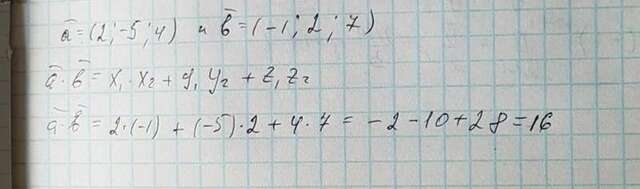 a̅ = (2; -5; 4) и b̅ = (-1; 2; 7)
a̅ · b̅ = x₁ · x₂ + y₁ y₂ + z₁ z₂
a̅ · b̅ = 2·(-1) + (-5)·2 + 4·7 = -2 -10 + 28 = 16